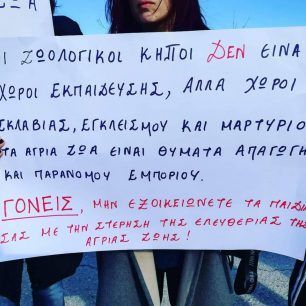 ΞΑ
Ι ΖΩΟΛΟΓΙΚΟΙ ΚΗΠΟΙ ΔΕΝ ΕΙΝΑ
ΧΩΡΟΙ ΕΚΠΑΙΔΕΥΣΗΣ, ΑΛΛΑ ΧΩΡΟΙ
ΣΚΛΑΒΙΑΣ, ΕΓΚΛΕΙΣΜΟΥ ΚΑΙ ΜΑΡΤΥΡΙΟ
ΤΑ ΑΓΡΙΑ ΖΩΑ ΕΙΝΑΙ ΘΥΜΑΤΑ ΑΠΑΓΩΓΗ
ΚΑΙ ΠΑΡΑΝΟΜΟΥ ΕΜΠΟΡΙΟΥ.
ΓΟΝΕΙΣ, ΜΗΝ ΕΞΟΙΚΕΙΩΝΕΤΕ ΤΑ ΠΑΙΔΙ
ΣΑΣ ΜΕ ΤΗ ΣΤΕΡΗΣΗ ΤΗΣ ΕΛΕΥΘΕΡΙΑΣ ΤΗ
ΑΓΡΙΑΣ ΖΩΗΣ!